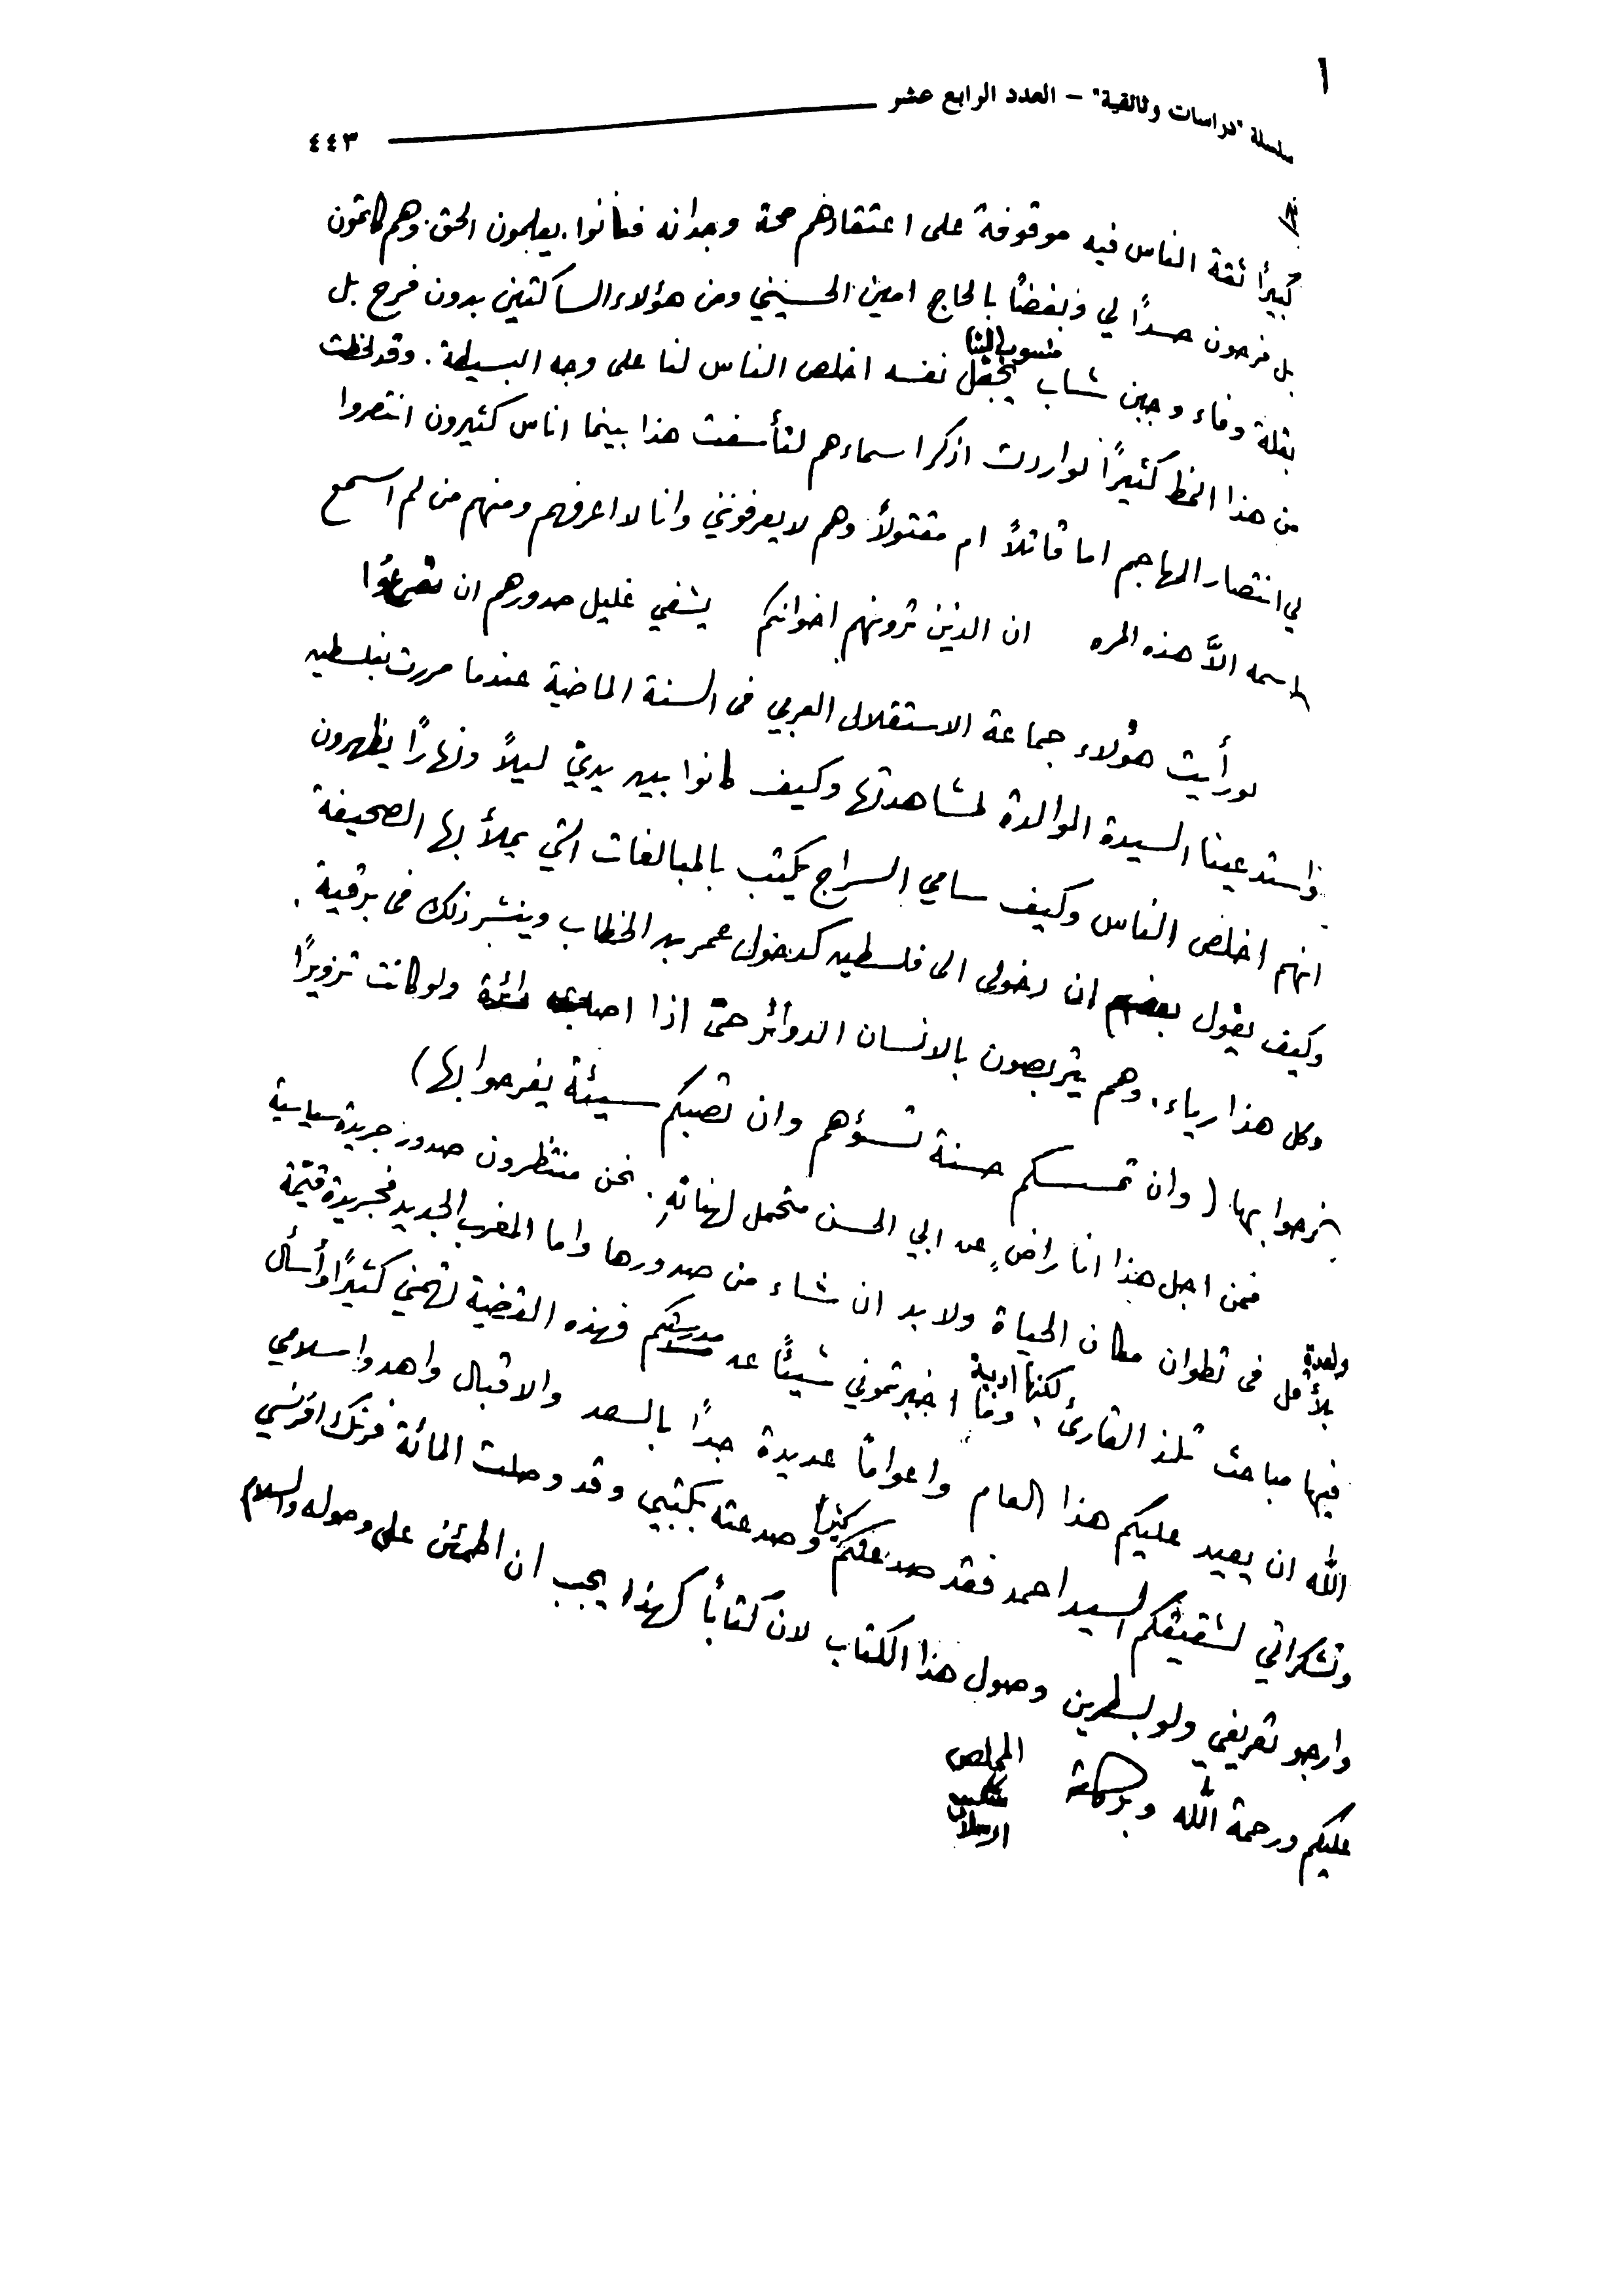 ١
سلسلة "دراسات وثائقية" – العدد الرابع عشر
٤٤٣
كبيرًا ثقة الناس فيه موقوفة على اعتقادهم صحة وجدانه فكانوا يعلمون الحق وهم كاتمون
بل فرحون حسدًا لي وبغضًا بالحاج امين الحسيني ومن هؤلاء الساكتين بدون فرح بل
بقلة وفاء وجبن شاب منسوب الينا يجعل نفسه اخلص الناس لنا على وجه البسيطة. وقد لحظت
من هذا النمط كثيرًا لو اردت اذكر اسماءهم لتأسفت هذا بينما اناس كثيرون انتصروا
لي انتصار المهاجم اما قاتلاً ام مقتولاً وهم لا يعرفونني وانا لا اعرفهم ومنهم من لم اسمع
باسمه الاَّ هذه المره ان الذين ترونهم اخوانكم يشفي غليل صدورهم ان تصرعوا
لو رأيت هؤلاء جماعة الاستقلال العربي فى السنة الماضية عندما مررت بفلسطين
واستدعينا السيدة الوالدة لمشاهدتها وكيف كانوا بين يديّ ليلاً ونهارًا يظهرون
انهم اخلص الناس وكيف سامي السراج يكتب بالمبالغات التي يملأ بها الصحيفة
وكيف يقول بعضهم ان دخولى الى فلسطين كدخول عمر بن الخطاب وينشر ذلك فى برقية.
وكل هذا رياء. وهم يتربصون بالانسان الدوائر حتى اذا اصابته دائرة ولو كانت تزويرًا
يفرحوا بها (وان تمسسكم حسنة تسؤهم وان تصبكم سيئة يفرحوا بها)
فمن اجل هذا انا راضٍ عن ابي الحسن متحمل لهناته. نحن منتظرون صدور جريدة سياسية
ولعدة
بلأمل فى تطوان مكان الحياة ولا بد ان شاء من صدورها واما المغرب الجديد فجريدة قيّمة
فيها مباحث تلذ القارئ لكنها ادبية. وما اخبرتموني شيئًا عن مدرستكم فهذه القضية تهمني كثيرًا وأسأل
الله ان يعيد عليكم هذا العام واعوامًا عديدة جدًا بالسعد والاقبال واهدوا سلامي
وتشكراتي لشقيقكم السيد احمد فقد صدعتكم كثيرًا وصدعته بكتبي وقد وصلت المائة فرنك افرنسي
وارجو تعريفي ولو بسطرين وصول هذا الكتاب لان كتابًا كهذا يجب ان اطمئن على وصوله والسلام
عليكم ورحمة الله وبركاته
المخلص
شكيب
ارسلان